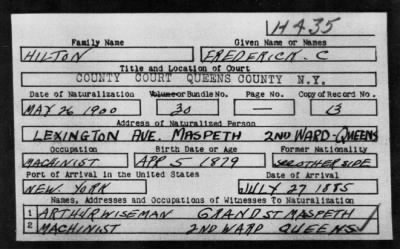 H435
Family Name Given Name or Names
HILTON FREDERICK. C
Title and Location of Court
COUNTY COURT QUEENS COUNTY N.Y.
Date of Naturalization Volume or Bundle No. Page No. Copy of Record No.
MAY 26 1900 30 — 13
Address of Naturalized Person
LEXINGTON AVE. MASPETH 2ND WARD-QUEENS
Occupation Birth Date or Age Former Nationality
MACHINIST APR 5 1879 SEE OTHER SIDE
Port of Arrival in the United States Date of Arrival
NEW. YORK JULY 27 1885
Names, Addresses and Occupations of Witnesses To Naturalization
1 ARTHUR WISEMAN GRAND ST MASPETH
2 MACHINIST 2ND WARD QUEENS